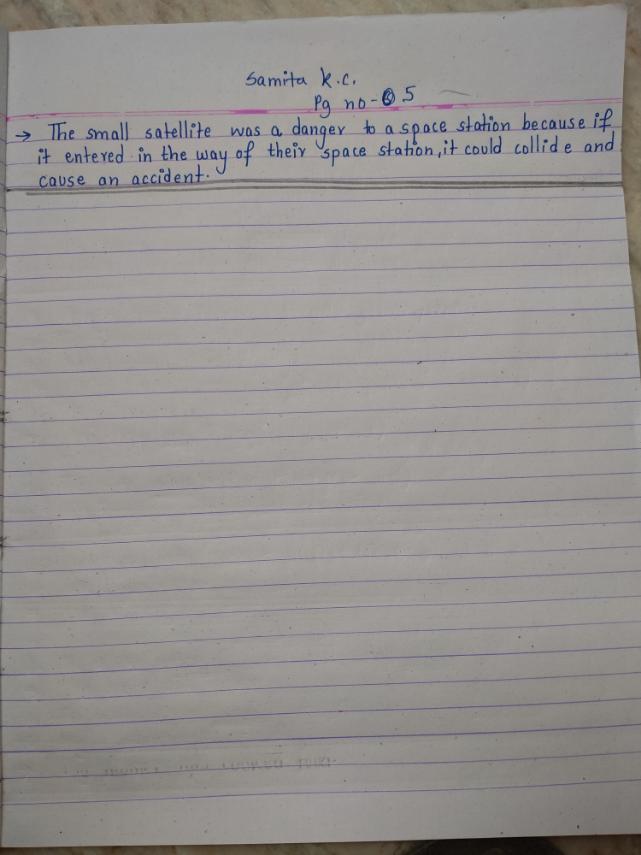 Samita K.C.
Pg no- 5
→ The small satellite was a danger to a space station because if
it entered in the way of their space station, it could collide and
cause an accident.